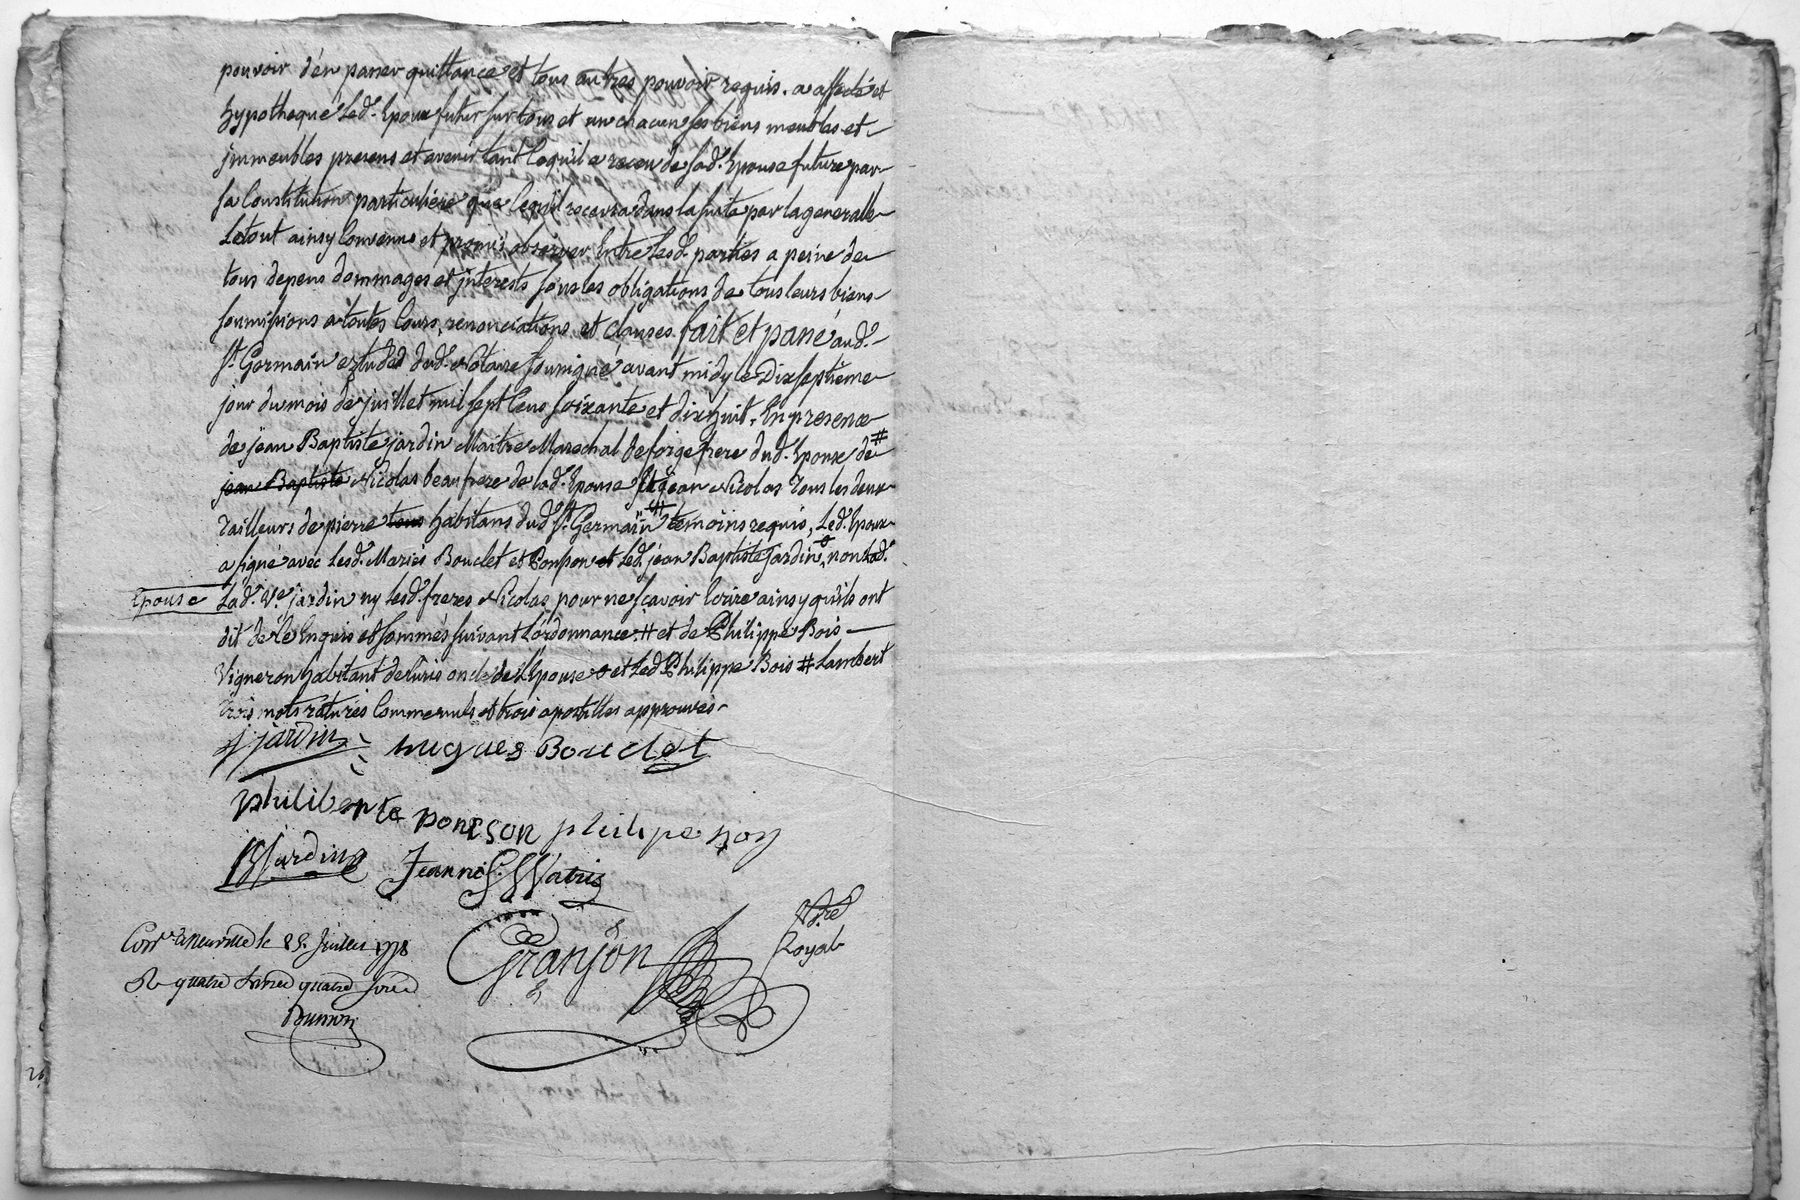 pouvoir d'en passer quittance et tous autres pouvoir requis. a affecté et
hypothequé led. Epoux futur sur tous et un chacun ses biens meubles et
jmmeubles presens et avenir tant ce qu'il a receu de lad. Epouse future par
sa Constitution particuliere que ce qu'il recevra dans la suite par la generalle
Le tout ainsy Convenu et promis observer Entre lesd. parties a peine de
tous depens dommages et jnterests sous les obligations de tous leurs biens
soumissions a toutes Cours, renonciations et clauses. fait et passé aud.
St. Germain etude dud. Notaire soussigné avant midy le Dixseptième
jour du mois de juillet mil sept Cens soixante et dixhuit. En presence
de jean Baptiste jardin Maitre Marechal de forge frere dud. Epoux de #
jean Baptiste Nicolas beaufrere de lad. Epouse et jean Nicolas tous les deux
tailleurs de pierre tous habitans dud. St. Germain # temoins requis, Led. Epoux
a signé avec lesd. Mariés Bouclet et Ponson et led. jean Baptiste jardin, non lad.
Epouse Lad. Ve. jardin ny lesd. freres Nicolas pour ne sçavoir Ecrire ainsy qu'ils ont
dit de ce Enquis et sommés suivant L'ordonnance. # et de Philippe Bois
Vigneron habitant de Curis oncle de l'Epouse et Led. Philippe Bois # Lambert
trois mots raturés Comme nuls et trois apostilles approuvés.
j jardin hugues Bouclet
philiberte ponson philipe boy
JB Jardin Jeanne Watris
Granjon Nre. Royal
Conlé. à Neuville le 25. Juillet 1778
R quatre livres quatre sols